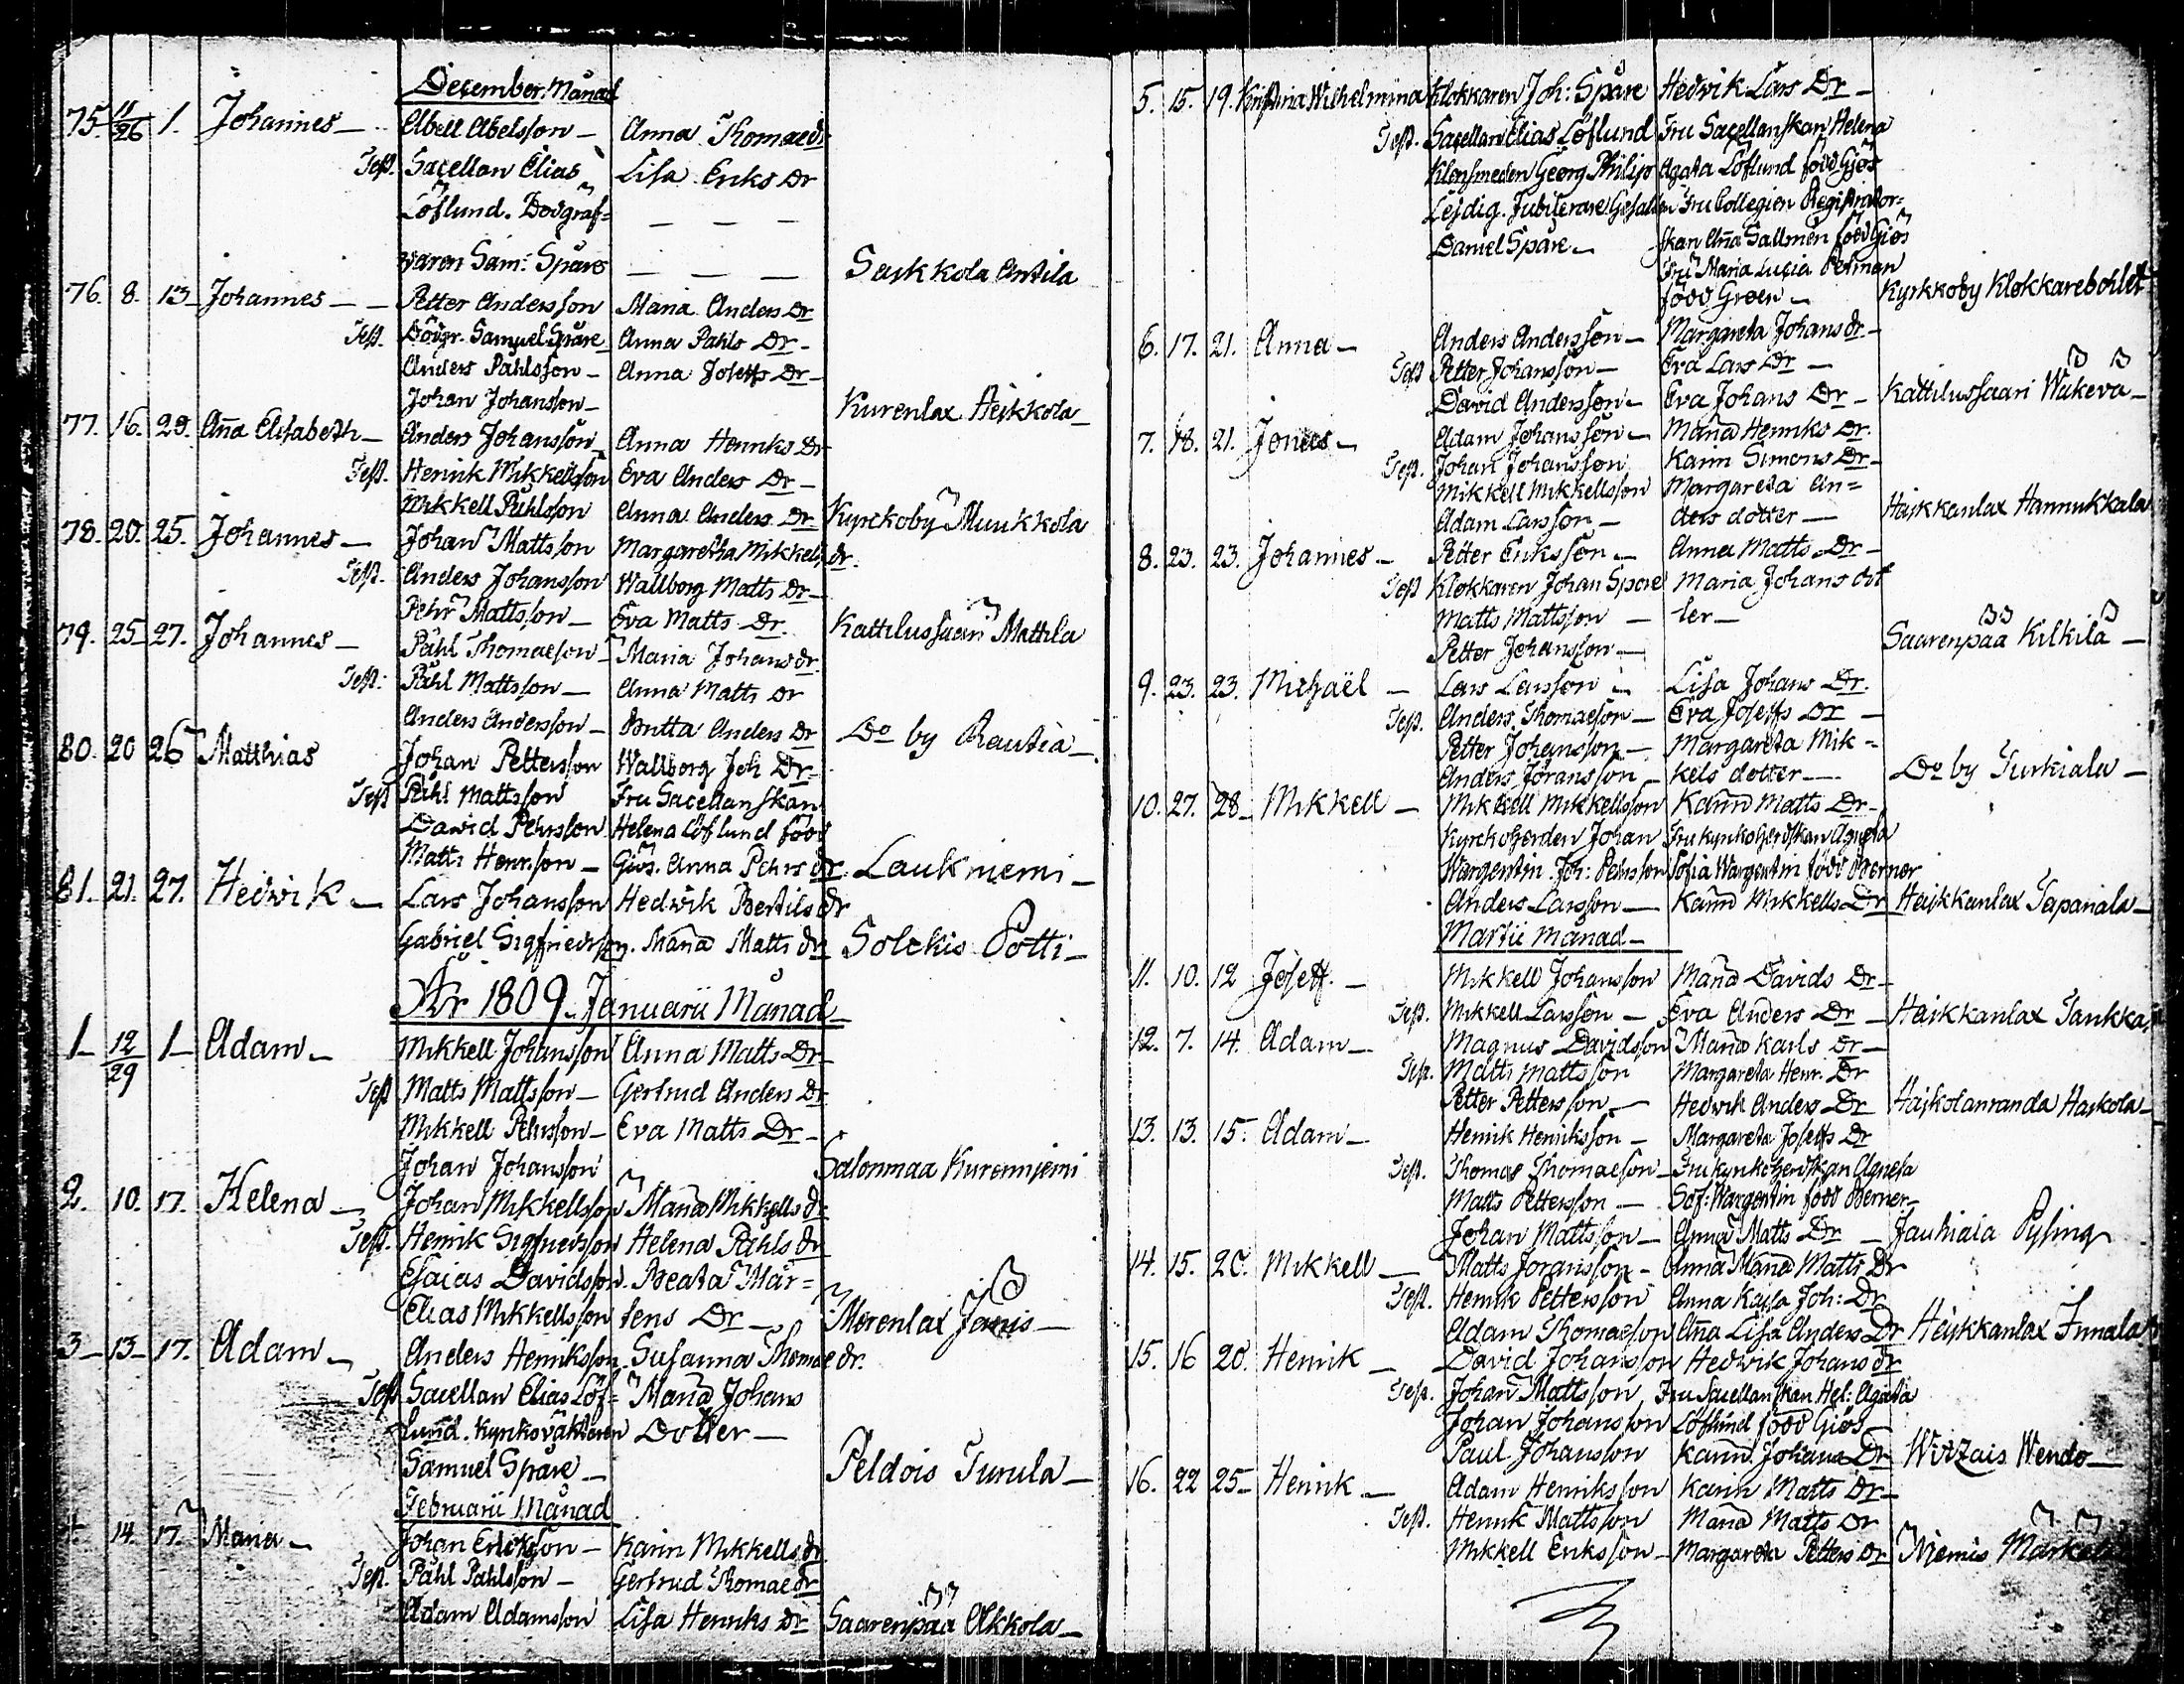 December Månad
75 11/26 1. Johannes — Abell Abelsson — Anna Thomaedr
Test. Sacellan Elias Lisa Eriks Dr
Löflund. Dödgraf= — — —
varen Sam: Spåre — — — Saskkola Antila
76. 8. 13 Johannes — Petter Andersson Maria Anders Dr
Test. Dödgr. Samuel Spåre Anna Påhls Dr —
Anders Påhlsson — Anna Joseffs Dr —
Johan Johansson — Kurenlax Heikkola
77. 16. 29. Aña Elisabeth — Anders Johansson Anna Henriks Dr
Test. Henrik Mikkellsson Eva Anders Dr —
Mikkell Påhlsson Anna Anders Dr Kyrckoby Muukkola
78. 20. 25. Johannes — Johan Mattsson Margaretha Mikkels dr.
Test. Anders Johansson Wallborg Matts Dr —
Pehr Mattsson — Eva Matts Dr. Kattilussaari Mattila
79. 25 27. Johannes — Påhl Thomaeson — Maria Johans dr.
Test. Påhl Mattsson — Anna Matts Dr
Anders Andersson — Britta Anders Dr Do by Rautia —
80. 20 26 Matthias Johan Pettersson Wallborg Joh Dr
Test Påhl Mattsson Fru Sacellanskan
David Pehrsson Helena Löflund född
Matts Henrsson — Giös. Anna Pehrs dr Laukniemi —
81. 21. 27. Hedvik — Lars Johansson Hedvik Bertils dr
Gabriel Sigfriedsson. Maria Matts dr Solckis Potti —
År 1809. Januarii Månad
1 — 12/29 1 — Adam — Mikkell Johansson Anna Matts Dr
Test Matts Mattsson — Gertrud Anders Dr
Mikkell Pehrsson — Eva Matts Dr —
Johan Johansson Salonmaa Kurenniemi
2. 10. 17. Helena — Johan Mikkellsson Maria Mikkells dr
Test. Henrik Sigfriedsson Helena Påhls dr
Esaias Davidsson. Beata Mår=
Elias Mikkellsson tens Dr — Merenlax Jänis —
3 — 13 — 17. Adam — Anders Henriksson Susanna Thomae dr.
Test Sacellan Elias Löf= Maria Johans
lund. Kyrkoväktaren Dotter —
Samuel Spåre — Peldois Turula —
Februarii Månad
14. 17. Maria — Johan Erickson — Karin Mikkells dr
Test. Påhl Påhlsson — Gertrud Thomae dr
Adam Adamsson Lisa Henriks Dr Saarenpää Akkola —
5. 15. 19. Kristina Wilhelmina Klokkaren Joh: Spåre Hedvik Lars Dr —
Test. Sacellan Elias Löflund Fru Sacellanskan Helena
Klensmeden Georg Philip Agata Löflund född Giös
Leidig. Jubilerare Gesällen Fru Collegien Registrator=
Daniel Spåre — skan Aña Sallmén född Giös
Fru Maria Lucia
född Groen — Kyrkkoby Klokkarebohlet
6. 17. 21. Anna — Anders Andersson — Margareta Johans dr —
Test Petter Johansson — Eva Lars Dr —
David Andersson — Eva Johans Dr — Kattilussaari Wäkevä —
7. 18. 21. Jonas — Adam Johansson — Maria Henriks Dr.
Test. Johan Johansson Karin Simons Dr —
Mikkell Mikkellsson Margareta An=
Adam Larsson — ders dotter — Heikkanlax Hannukkala
8. 23. 23. Johannes — Petter Eriksson — Anna Matts Dr —
Test Klokkaren Johan Spåre Maria Johans dot
Matts Mattsson — ter —
Petter Johansson — Saarenpää Kilkilä —
9. 23. 23. Michaël — Lars Larsson — Lisa Johans Dr.
Test. Anders Thomaeson — Eva Joseffs Dr —
Petter Johansson — Margareta Mik=
Anders Joransson — kels dotter — Do by Turkiala —
10. 27. 28 Mikkell — Mikkell Mikkellsson Karin Matts Dr —
Kyrckoherden Johan Fru Kyrkoherdskan Agneta
Wargentin. Joh: Pehrsson Sofia Wargentin född Berner
Anders Larsson — Karin Mikkells Dr Heikkanlax Tapaniala —
Martii Månad —
11. 10. 12 Joseff. — Mikkell Johansson Maria Davids Dr —
Test. Mikkell Larsson — Eva Anders Dr — Heikkanlax Tankka
12. 7. 14. Adam — Magnus Davidsson Maria Karls Dr —
Test. Matts Mattsson Margareta Henr. Dr
Petter Pettersson — Hedvik Anders Dr Haikolanranda Haikola —
13. 13. 15. Adam — Henrik Henriksson — Margareta Joseffs Dr
Test. Thomas Thomaeson — Fru Kyrkoherdskan Agneta
Matts Pettersson — Sof: Wargentin född Berner —
Johan Mattsson — Anna Matts Dr — Jauhiala Pysing
14. 15. 20. Mikkell — Matts Joransson — Anna Maria Matts Dr
Test. Henrik Pettersson Anna Kajsa Joh: Dr
Adam Thomaeson Aña Lisa Anders Dr Heikkanlax Innala
15. 16 20. Henrik — David Johansson Hedvik Johans dr
Test. Johan Mattsson Fru Sacellanskan Hel: Agata
Johan Johansson Löflund född Giös —
Paul Johansson Karin Johans Dr Wirzais Wendo —
16. 22 25 — Henrik — Adam Henriksson Karin Matts Dr —
Test. Henrik Mattsson Maria Matts Dr
Mikkell Eriksson — Margareta Petters Dr Niemis